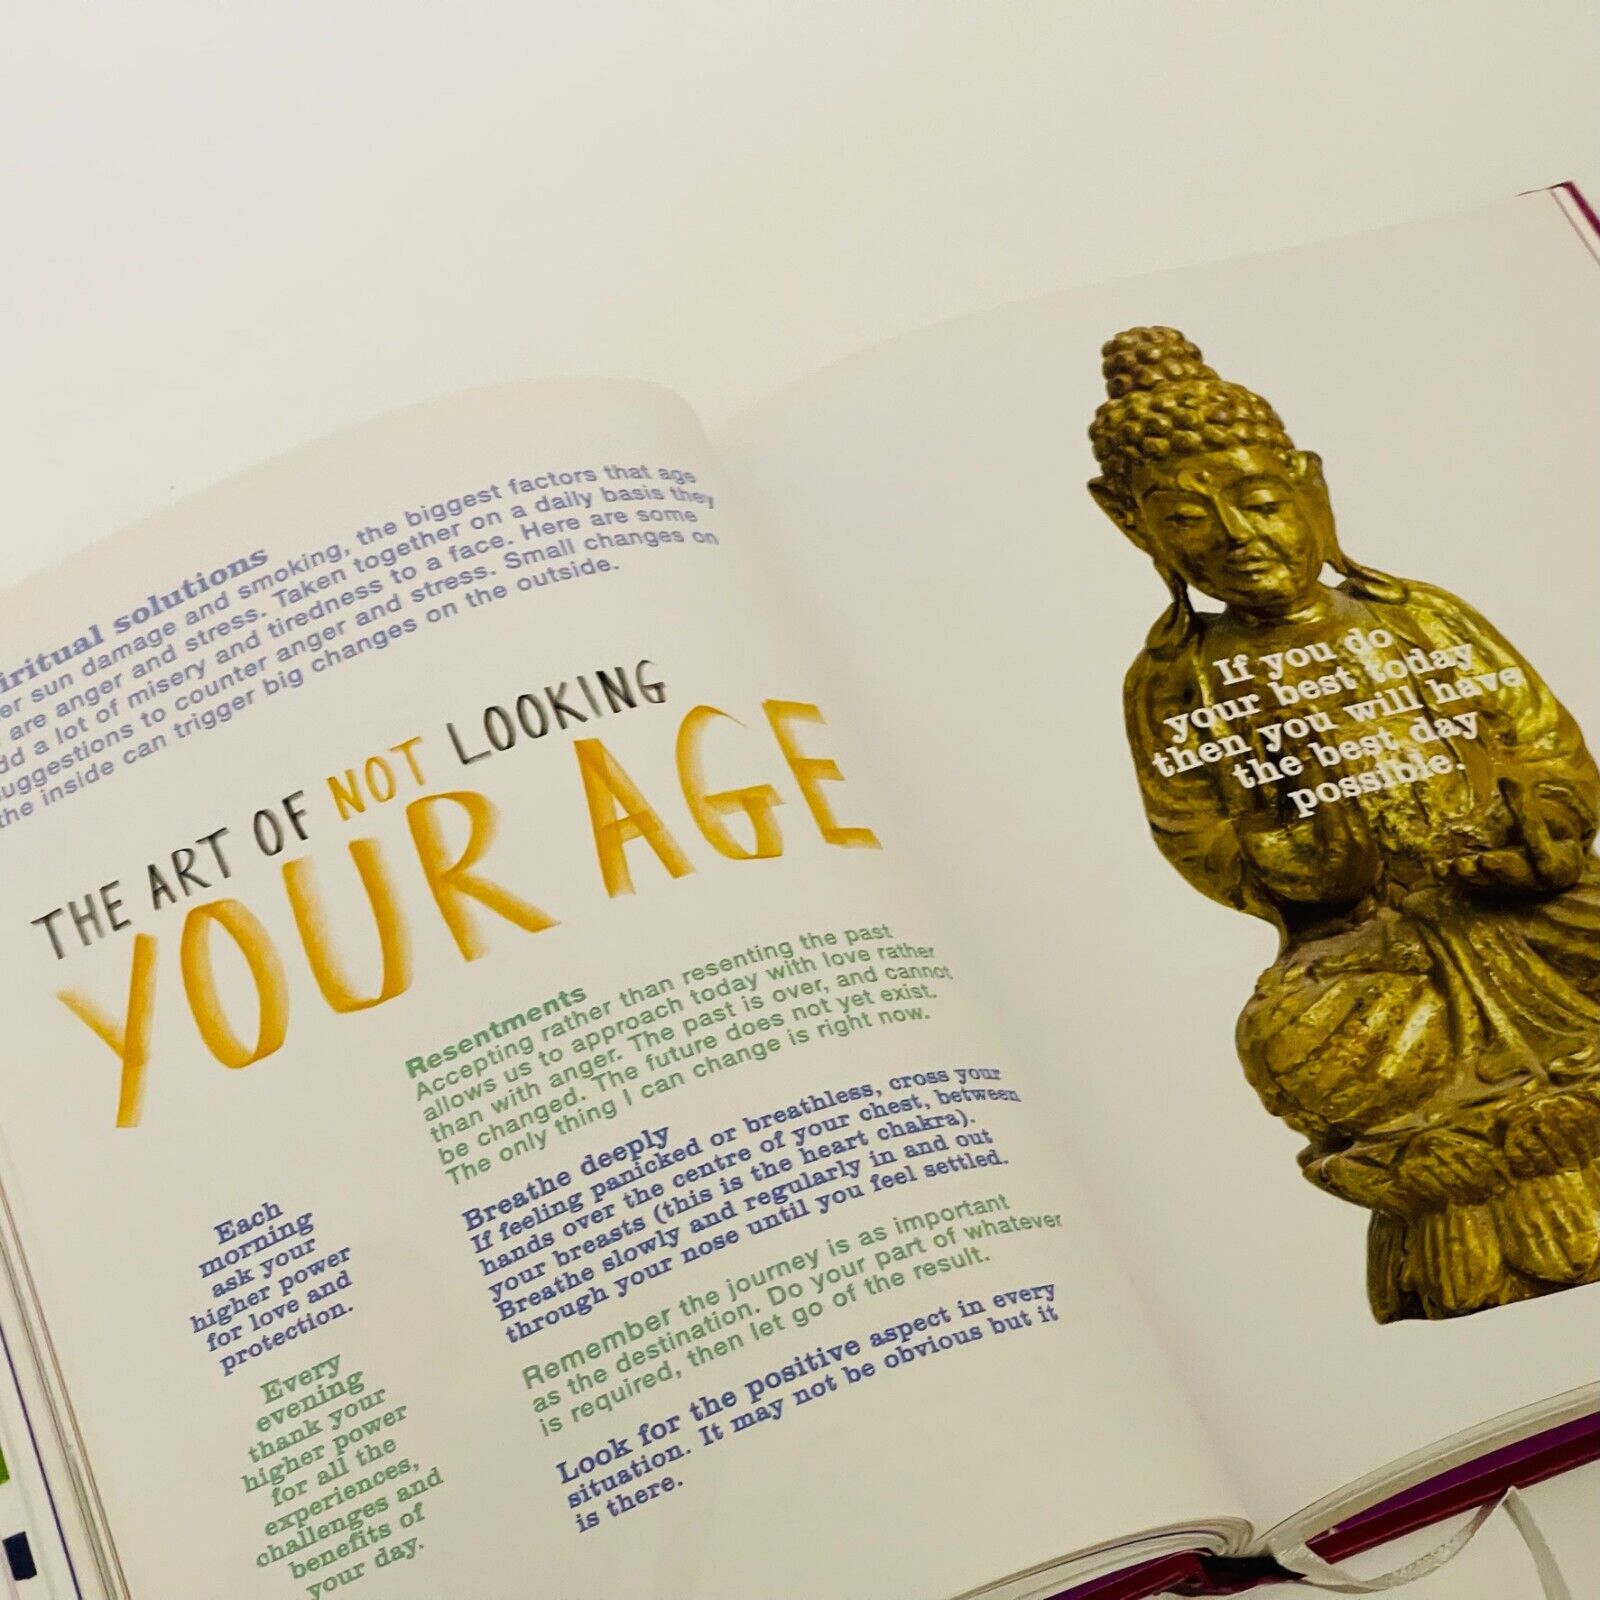 solutions
sun damage and smoking, the biggest factors that age
are anger and stress. Taken together on a daily basis they
a lot of misery and tiredness to a face. Here are some
suggestions to counter anger and stress. Small changes on
the inside can trigger big changes on the outside.
THE ART OF NOT LOOKING
YOUR AGE
Resentments
Accepting rather than resenting the past
allows us to approach today with love rather
than with anger. The past is over, and cannot
be changed. The future does not yet exist.
The only thing I can change is right now.
Breathe deeply
If feeling panicked or breathless, cross your
hands over the centre of your chest, between
your breasts (this is the heart chakra).
Breathe slowly and regularly in and out
through your nose until you feel settled.
Remember the journey is as important
as the destination. Do your part of whatever
is required, then let go of the result.
Look for the positive aspect in every
situation. It may not be obvious but it
is there.
Each
morning
ask your
higher power
for love and
protection.
Every
evening
thank your
higher power
for all the
experiences,
challenges and
benefits of
your day.
If you do
your best today
then you will have
the best day
possible.